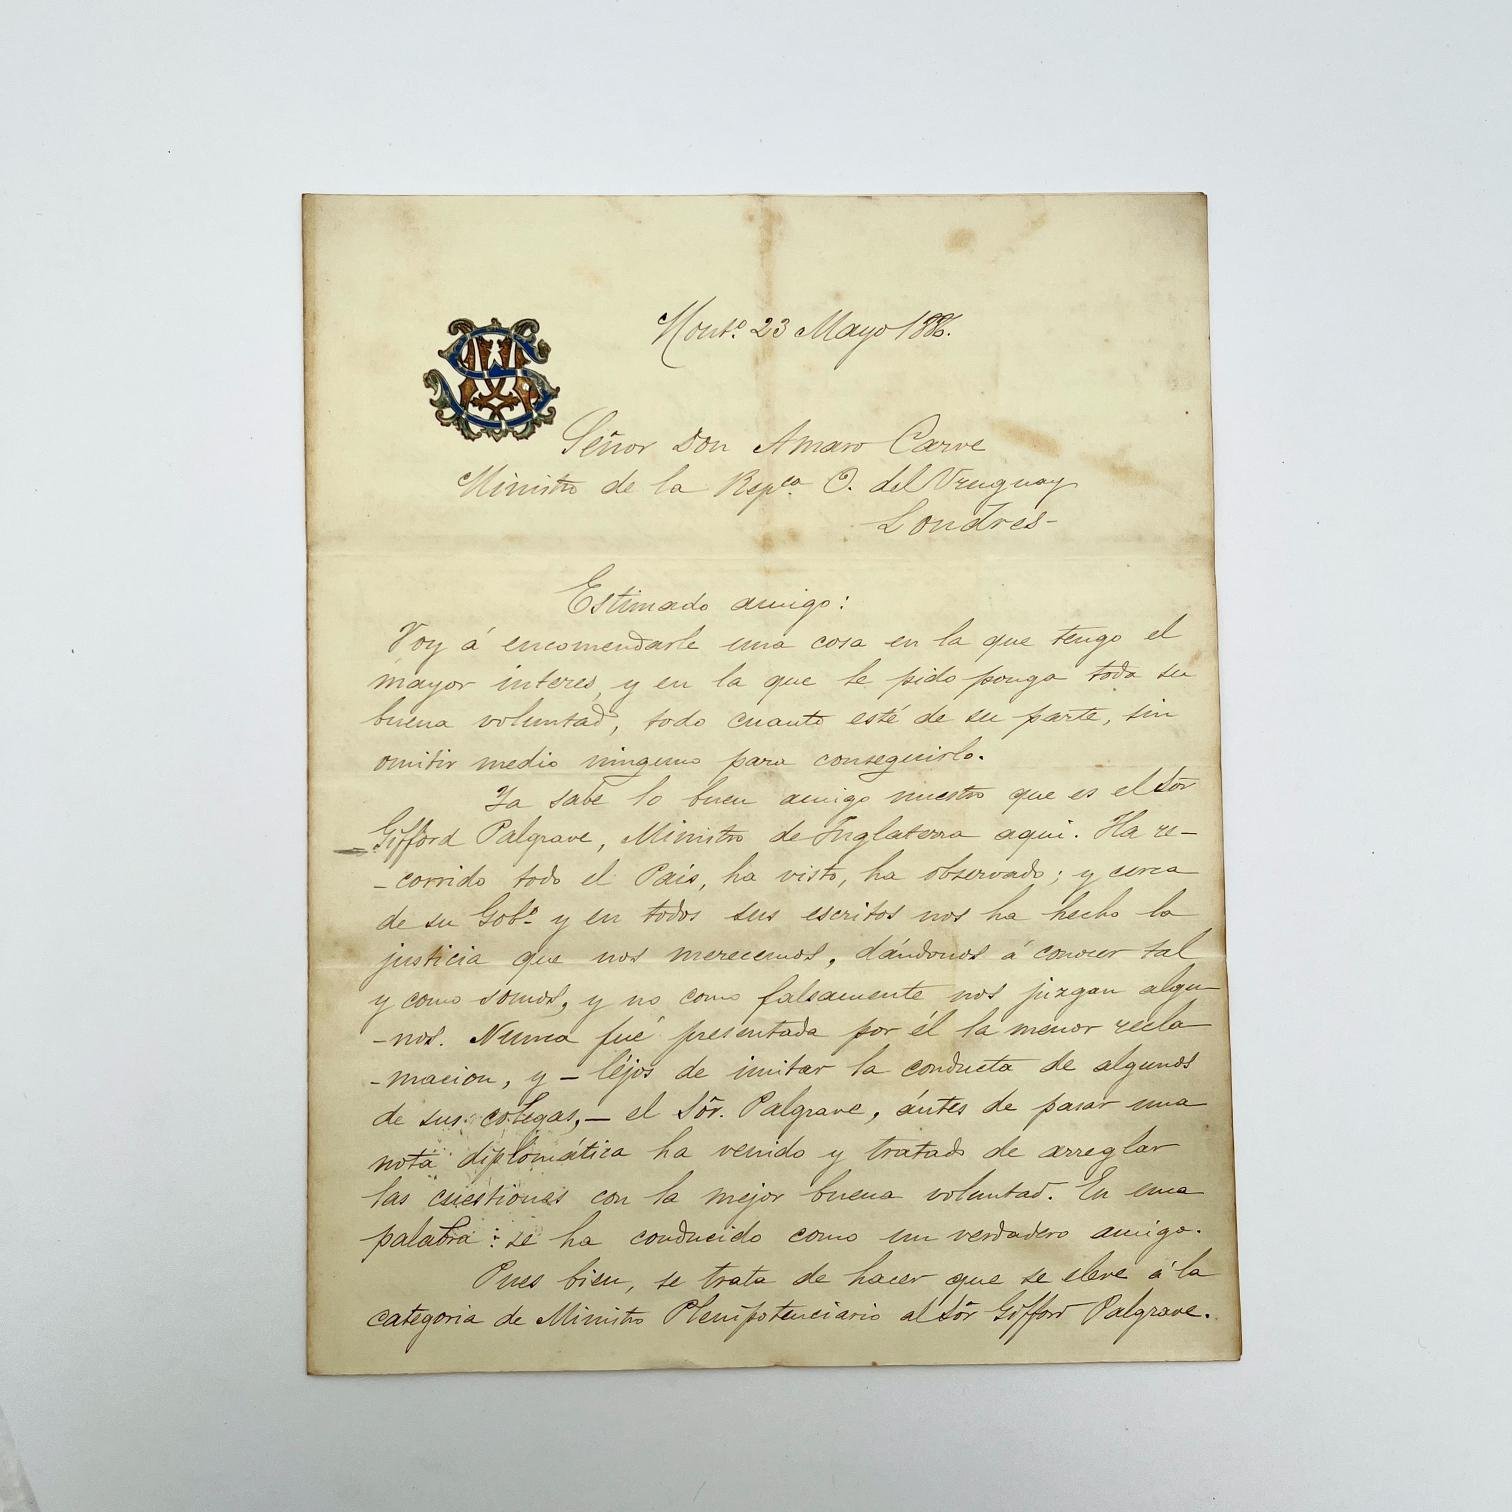 Montº. 23 Mayo 1886.
Señor Don Amaro Carve
Ministro de la Repca. O. del Uruguay
Londres-
Estimado amigo:
Voy á encomendarle una cosa en la que tengo el
mayor interes, y en la que le pido ponga toda su
buena voluntad, todo cuanto esté de su parte, sin
omitir medio ninguno para conseguirlo.
Ya sabe lo buen amigo nuestro que es el Sõr
Gifford Palgrave, Ministro de Inglaterra aqui. Ha re-
-corrido todo el Pais, ha visto, ha observado; y cerca
de su Gobº. y en todos sus escritos nos ha hecho la
justicia que nos merecemos, dándonos á conocer tal
y como somos, y no como falsamente nos juzgan algu-
-nos. Nunca fué presentada por él la menor recla-
-macion, y - léjos de imitar la conducta de algunos
de sus colegas, - el Sõr. Palgrave, ántes de pasar una
nota diplomática ha venido y tratado de arreglar
las cuestiones con la mejor buena voluntad. En una
palabra: se ha conducido como un verdadero amigo.
Pues bien, se trata de hacer que se eleve á la
categoria de Ministro Plenipotenciario al Sõr Gifford Palgrave.